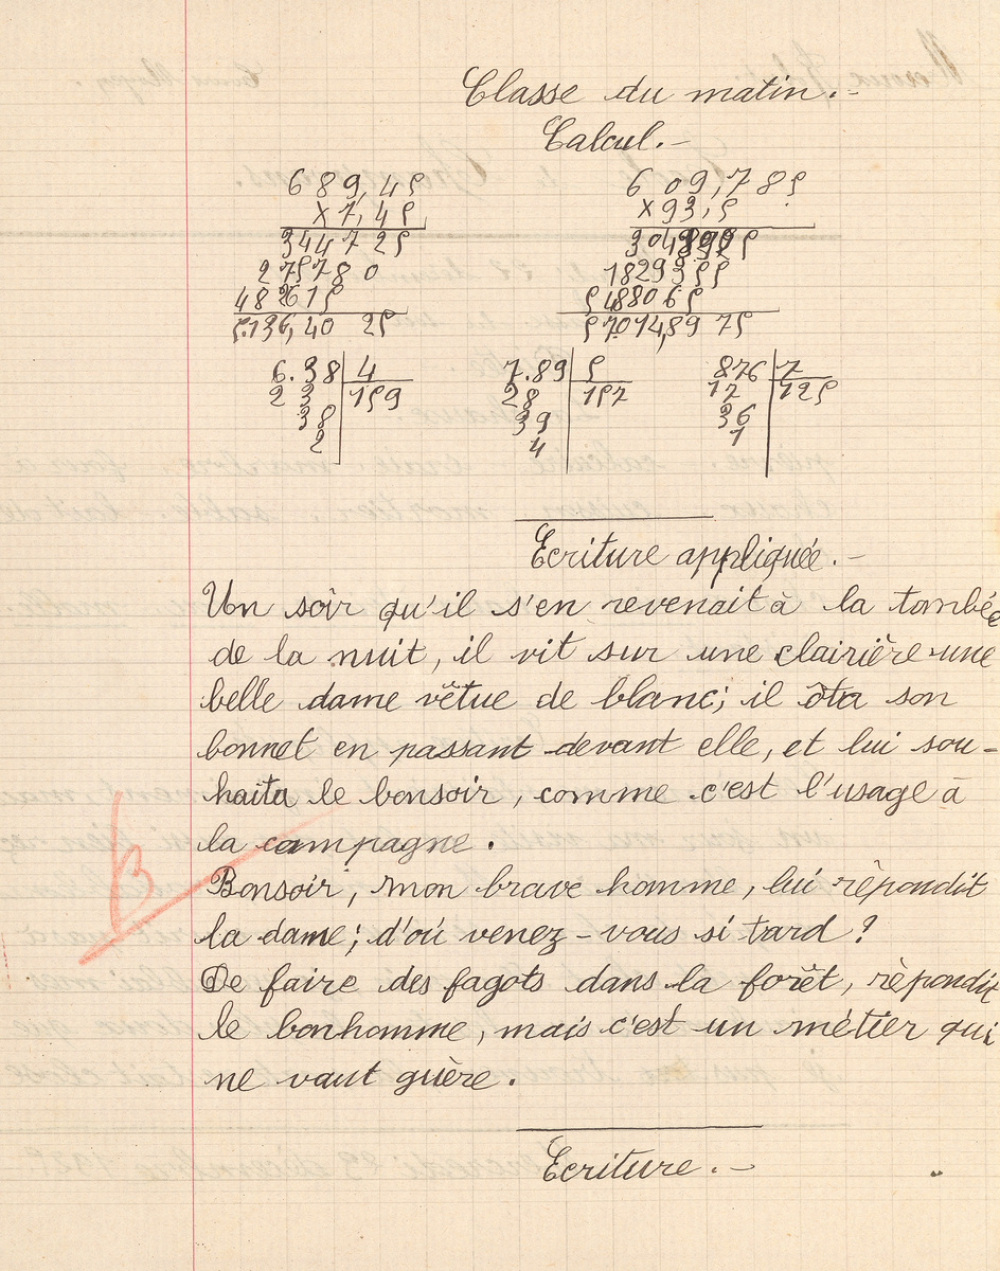 Classe du matin.-
Calcul.-
689,45
x 7,45
3447 25
275780
482615
5.136,40 25
609,785
x 93,5
3048925
1829355
548806 5
57.014,89 75
6.38 | 4
23 | 159
38
2
7.89 | 5
28 | 157
39
4
876 | 7
17 | 125
36
1
Ecriture appliquée.-
Un soir qu'il s'en revenait à la tombée
de la nuit, il vit sur une clairière une
belle dame vêtue de blanc; il ôta son
bonnet en passant devant elle, et lui sou-
haita le bonsoir, comme c'est l'usage à
la campagne.
B
Bonsoir, mon brave homme, lui répondit
la dame; d'où venez-vous si tard ?
De faire des fagots dans la forêt, répondit
le bonhomme, mais c'est un métier qui
ne vaut guère.
Ecriture.-